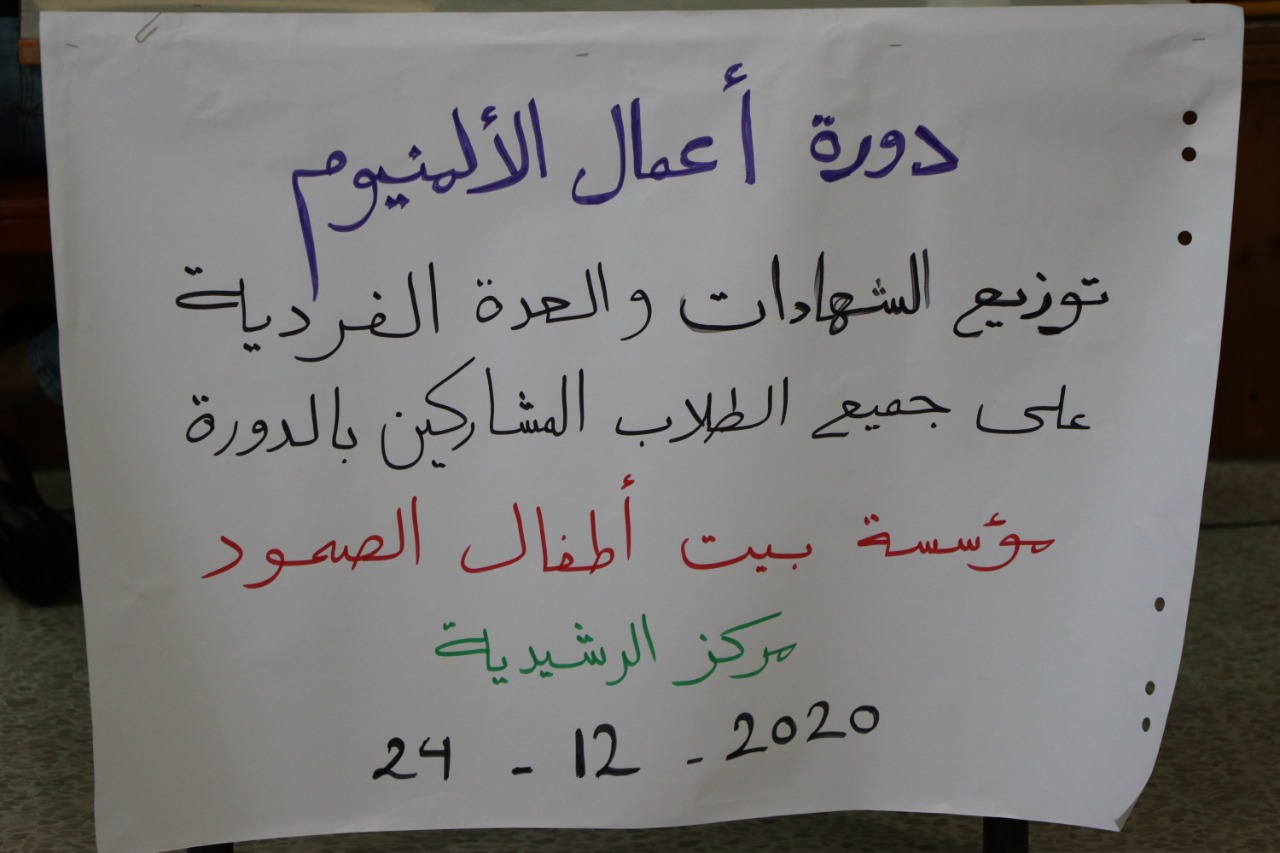 دورة أعمال الألمنيوم
توزيع الشهادات والعدة الفردية
على جميع الطلاب المشاركين بالدورة
مؤسسة بيت أطفال الصمود
مركز الرشيدية
24 - 12 - 2020